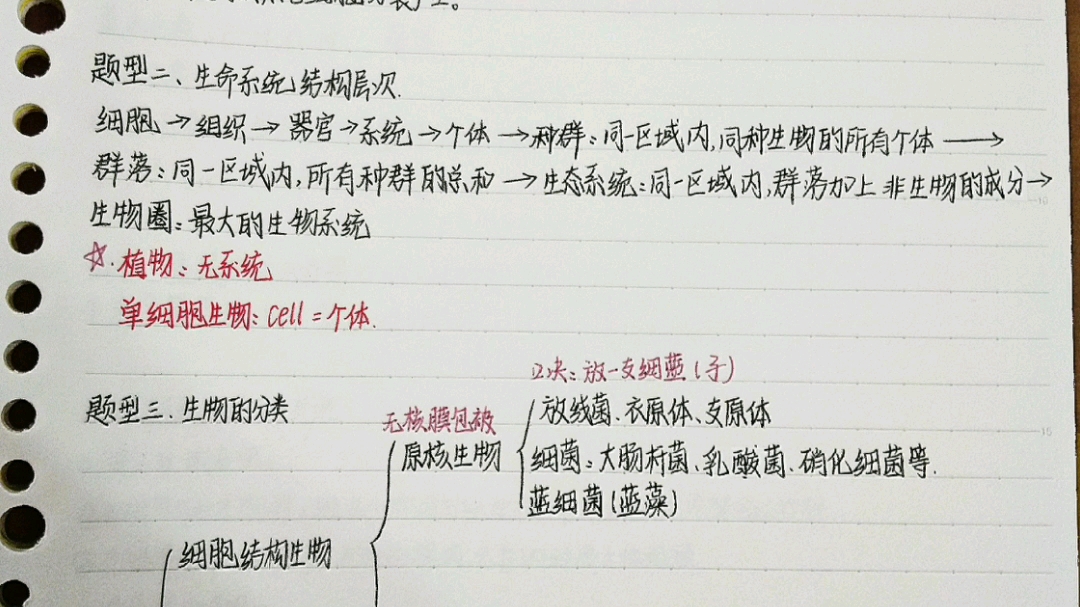 题型二、生命系统结构层次
细胞→组织→器官→系统→个体→种群:同一区域内,同种生物的所有个体→
群落:同一区域内,所有种群的总和→生态系统:同一区域内,群落加上非生物的成分→
生物圈:最大的生物系统
☆.植物:无系统
单细胞生物:cell=个体.
口决:放一支细蓝(子)
题型三.生物的分类
无核膜包被
放线菌、衣原体、支原体
原核生物
细菌:大肠杆菌、乳酸菌、硝化细菌等.
蓝细菌(蓝藻)
细胞结构生物